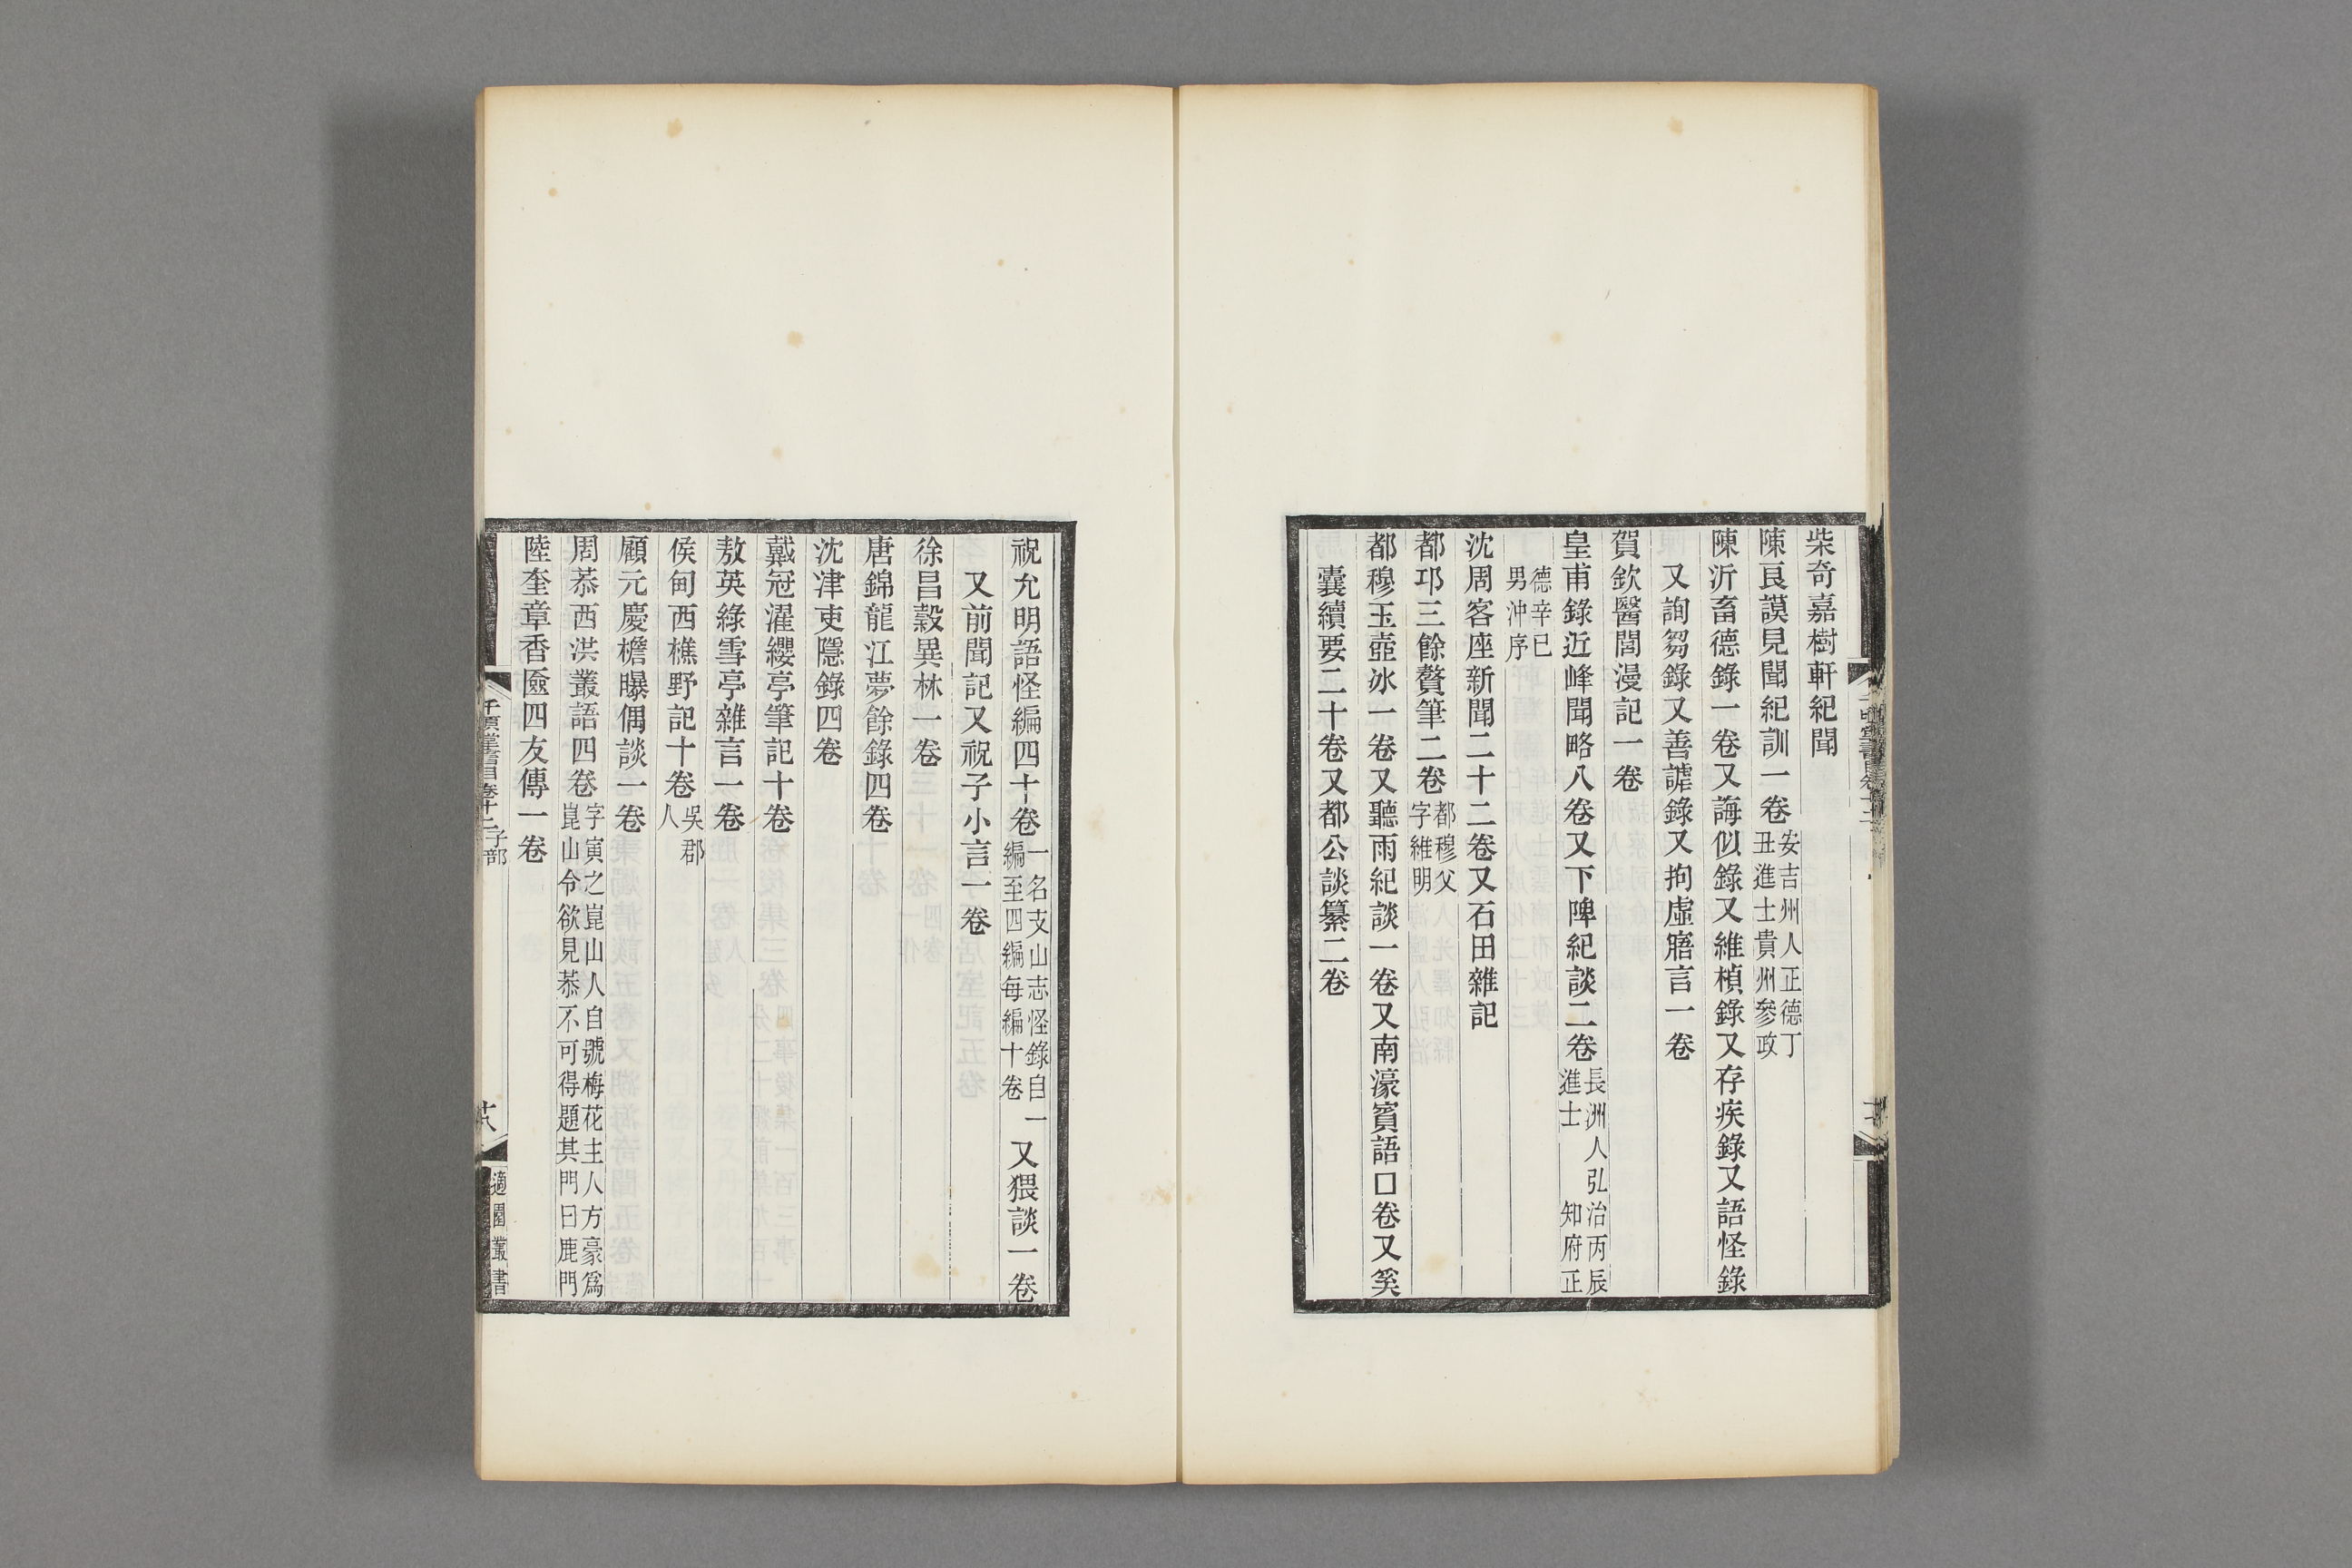 柴奇嘉樹軒紀聞
陳良謨見聞紀訓一卷安吉州人正德丁丑進士貴州參政
陳沂畜德錄一卷又誨似錄又維楨錄又存疾錄又語怪錄
又詢芻錄又善謔錄又拘虛寤言一卷
賀欽醫閭漫記一卷
皇甫錄近峰聞略八卷又下陴紀談二卷長洲人弘治丙辰進士 知府正
德辛巳男沖序
沈周客座新聞二十二卷又石田雜記
都邛三餘贅筆二卷都穆父字維明
都穆玉壺冰一卷又聽雨紀談一卷又南濠賓語口卷又奚
囊續要二十卷又都公談纂二卷
祝允明語怪編四十卷一名支山志怪錄自一編至四編每編十卷又猥談一卷
又前聞記又祝子小言一卷
徐昌穀異林一卷
唐錦龍江夢餘錄四卷
沈津吏隱錄四卷
戴冠濯纓亭筆記十卷
敖英綠雪亭雜言一卷
侯甸西樵野記十卷吳郡人
顧元慶檐曝偶談一卷
周菾西洪叢語四卷字寅之崑山人自號梅花主人方豪為崑山令欲見菾不可得題其門曰鹿門
陸奎章香匳四友傳一卷
千頃堂書目卷十二子部
十八
適園叢書